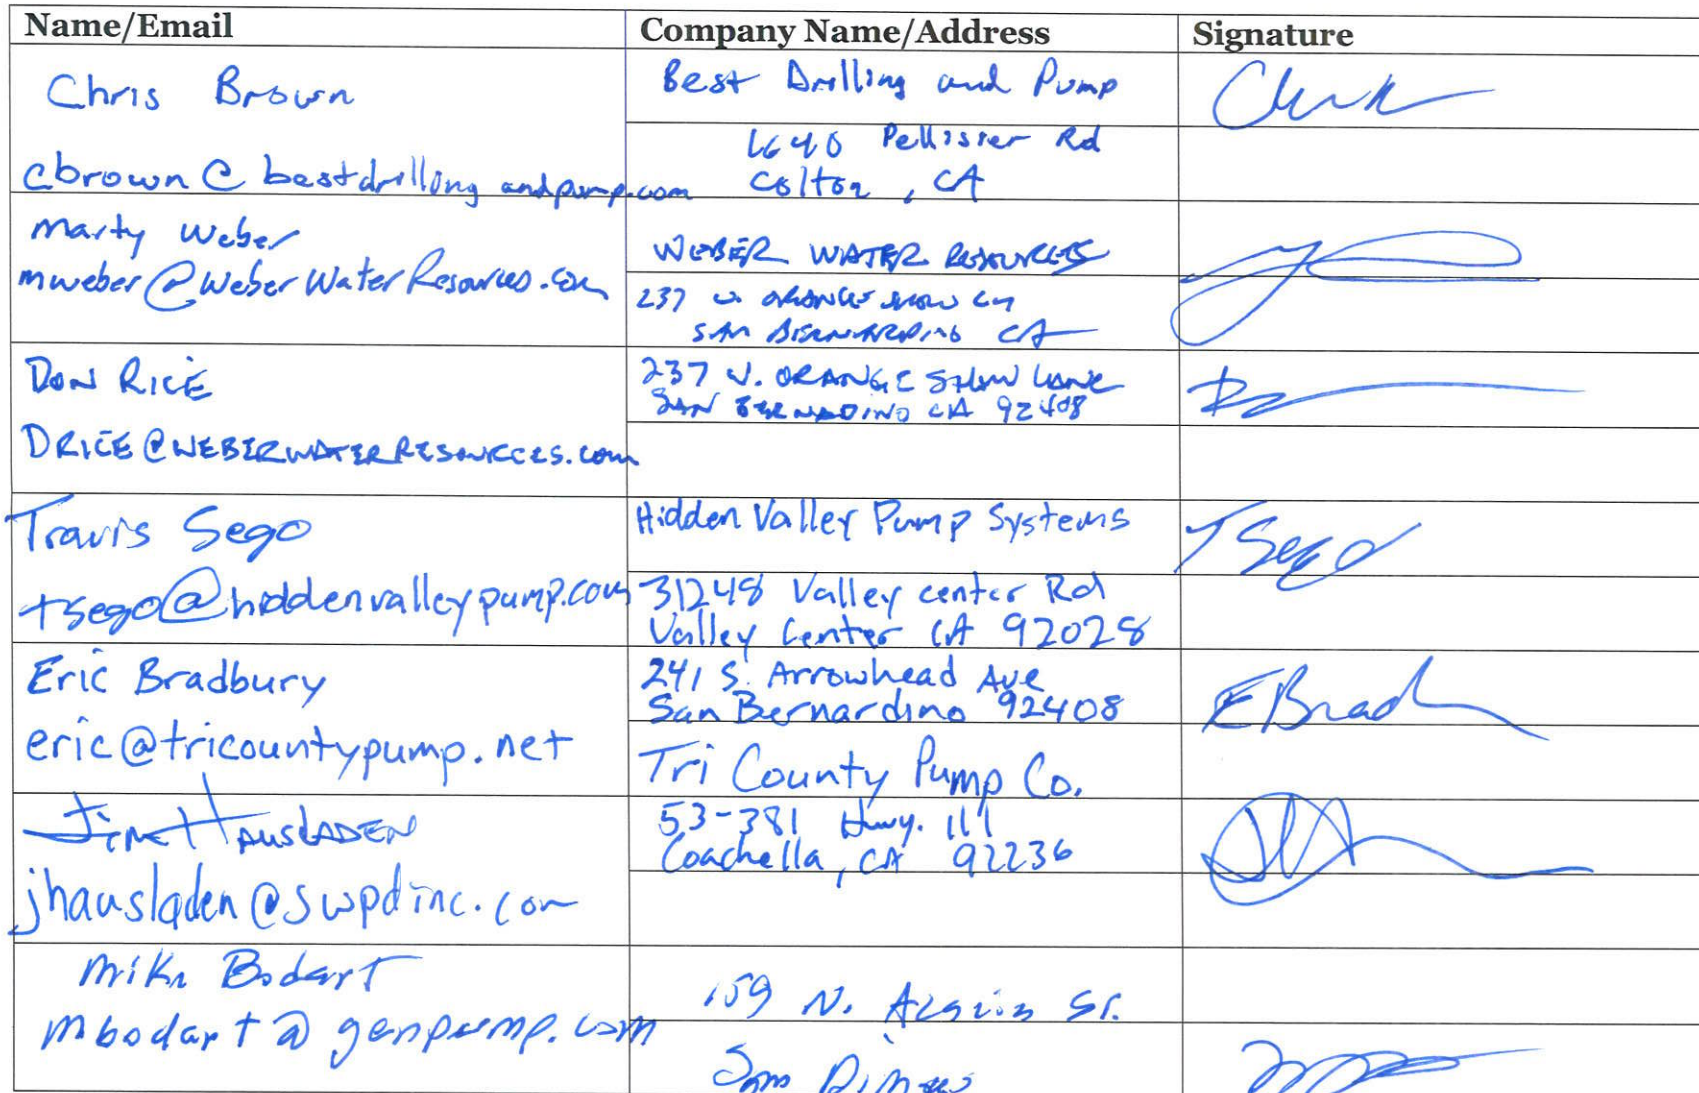 Name/Email
Company Name/Address
Signature
Chris Brown
cbrown@bestdrillingandpump.com
Best Drilling and Pump
1640 Pellissier Rd
Colton, CA
Marty Weber
mweber@WeberWaterResources.com
WEBER WATER RESOURCES
237 W. ORANGE SHOW LN
SAN BERNARDINO CA
DON RICE
DRICE@WEBERWATERRESOURCES.com
237 W. ORANGE SHOW LANE
SAN BERNADINO CA 92408
Travis Sego
tsego@hiddenvalleypump.com
Hidden Valley Pump Systems
31248 Valley Center Rd
Valley Center CA 92028
T Sego
Eric Bradbury
eric@tricountypump.net
241 S. Arrowhead Ave
San Bernardino 92408
Tri County Pump Co.
E Brad
Jim HAUSLADEN
jhausladen@swpdinc.com
53-381 Hwy. 111
Coachella, CA 92236
Mike Bodart
mbodart@genpump.com
159 N. Acacia St.
San Dimas